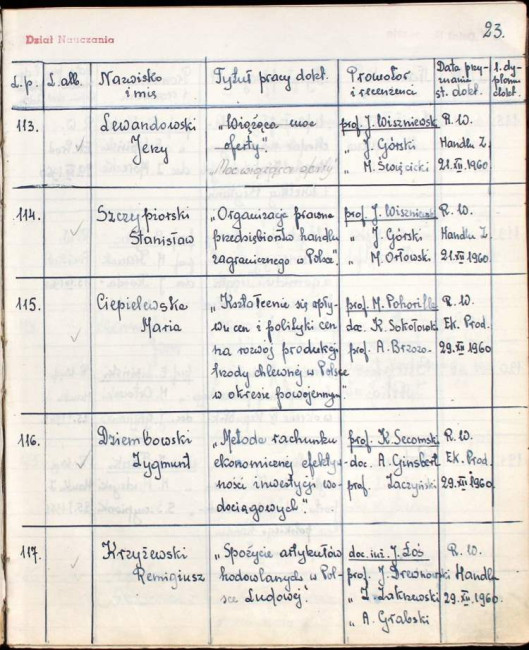 23.
Dział Nauczania
L.p. L.alb. Nazwisko i imię Tytuł pracy dokt. Promotor i recenzenci Data przyznania st. dokt. l. dyplomu dokt.
113. Lewandowski „Wiążąca moc prof. J. Wiszniewski R. W.
Jerzy oferty." „ J. Górski Handlu Z.
„Moc wiążąca oferty" „ M. Święcicki 21.XII.1960.
114. Szczypiorski „Organizacja prawna prof. J. Wiszniewski R. W.
Stanisław przedsiębiorstw handlu „ J. Górski Handlu Z.
zagranicznego w Polsce." „ M. Orłowski 21.XII.1960.
115. Ciepielewska „Kształcenie się opły- prof. M. Pohorille R. W.
Maria wu cen i polityki cen doc. K. Sokołowski Ek. Prod.
na rozwój produkcji prof. A. Brzoza 29.XII.1960
trzody chlewnej w Polsce
w okresie powojennym"
116. Dziembowski „Metoda rachunku prof. K. Secomski R. W.
Zygmunt ekonomicznej efekty- doc. A. Ginsbert Ek. Prod.
wności inwestycji wo- prof. Zaczyński 29.XII.1960.
dociągowych".
117. Krzyżewski „Spożycie artykułów doc. inż. J. Łoś R. W.
Remigiusz hodowlanych w Pol- prof. J. Drewnowski Handlu
sce Ludowej". „ Z. Zakrzewski 29.XII.1960.
„ A. Grabski